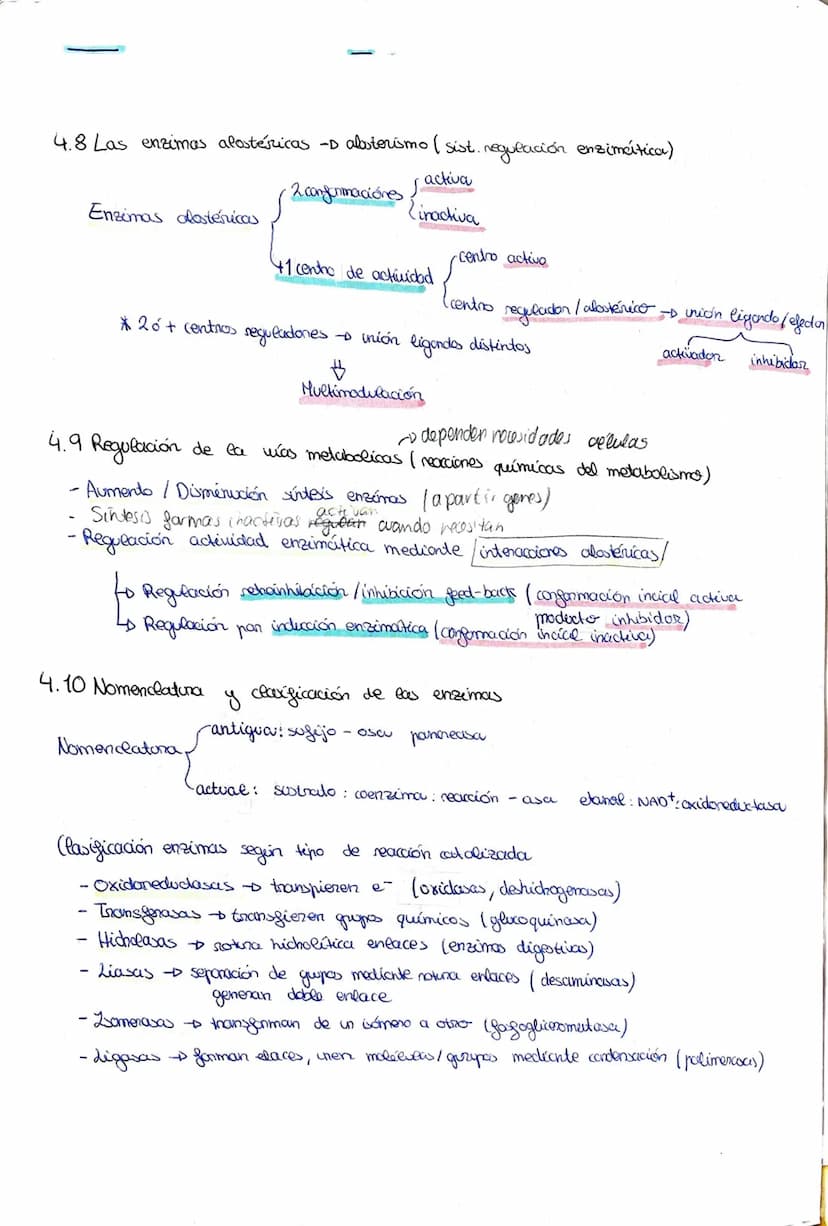 4.8 Las enzimas alostéricas → alosterismo (sist. regulación enzimática)
Enzimas alostéricas
2 conformaciónes
activa
inactiva
+1 centro de actividad
centro activo
centro regulador / alostérico → unión ligando/efector
activador inhibidor
* 2 ó + centros reguladores → unión ligandos distintos
Multimodulación
→ dependen necesidades células
4.9 Regulación de la vías metabolicas (reacciones químicas del metabolismo)
- Aumento / Disminución síntesis enzimas (a partir genes)
- Síntesis formas inactivas regulan activan cuando necesitan
- Regulación actividad enzimática mediante /interacciones alostéricas/
→ Regulación retroinhibición / inhibición feed-back (conformación incial activa
producto inhibidor)
→ Regulación por inducción enzimática (conformación incial inactiva)
4.10 Nomenclatura y clasificación de las enzimas
Nomenclatura
antigua: sufijo - asa pancreasa
actual: sustrato : coenzima : reacción - asa etanol : NAD⁺ : oxidoreductasa
Clasificación enzimas según tipo de reacción catalizada
- Oxidoreductasas → transfieren e⁻ (oxidasas, deshidrogenasas)
- Transferasas → transfieren grupos químicos (glucoquinasa)
- Hidrolasas → rotura hidrolítica enlaces (enzimas digestivas)
- Liasas → separación de grupos mediante rotura enlaces (desaminasas)
generan doble enlace
- Isomerasas → transforman de un isómero a otro (fosfogliceromutasa)
- Ligasas → forman elaces, unen moléculas / grupos mediante condensación (polimerasas)